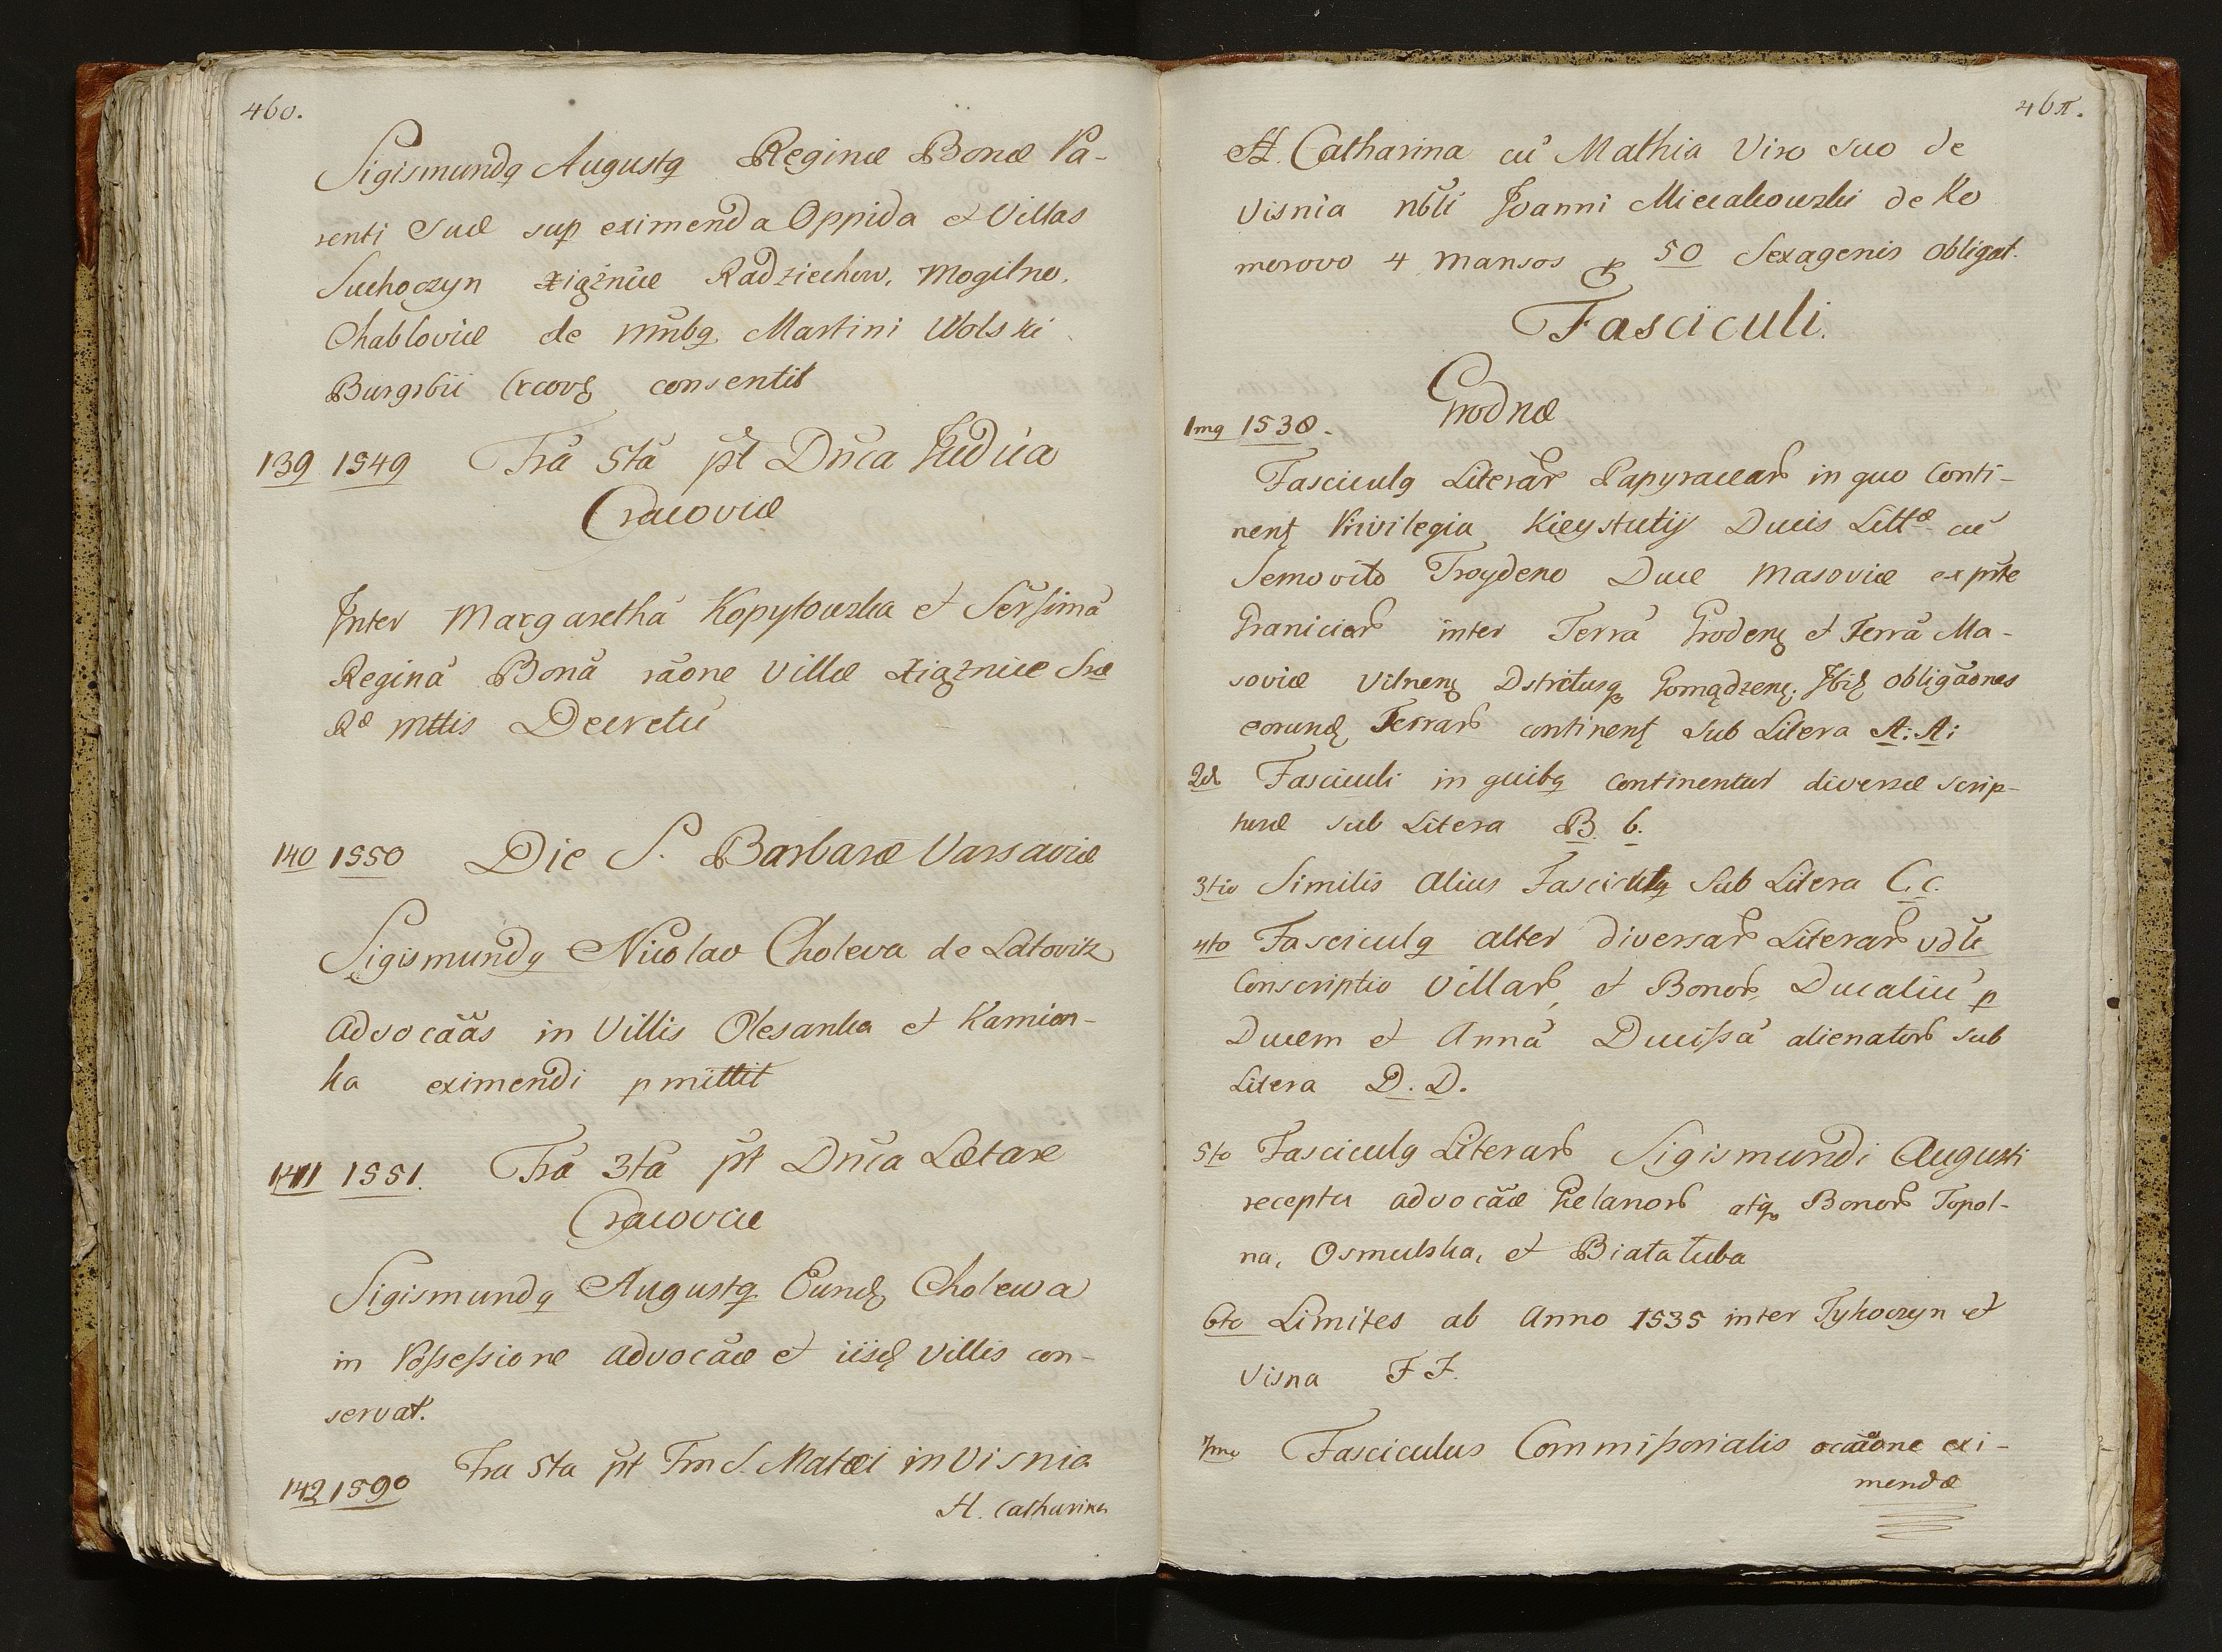 460.
Sigismundq Augustq Reginæ Bonæ Pa-
renti Suæ sup eximenda Oppida et Villas
Suchoczyn Xiąźnice Radziechow, Mogilno,
Chabloviæ de mnbq Martini Wolski
Burgrbii Crcovę consentit
139 1549 Fra 5ta pt Dnca Judica
Cracoviæ
Inter Margaretha Kopytowska et Serssima
Regina Bona raone Villæ Xiąznice Sræ
Ræ Mttis Decretu
140 1550 Die S. Barbaræ Varsaviæ
Sigismundq Nicolao Choleva de Latovik
advocaas in Villis Olesanka et Kamion-
ka eximendi pmittit
141 1551. Fra 3ta pt Dnca Lætare
Cracoviæ
Sigismundq Augustq Eundę Cholewa
in Possessione advocaæ et iisdę Villis con-
servat.
142 1590 Fra 5ta pt Fm S. Matæi in Visnia
H. Catharina
H. Catharina cu Mathia Viro suo de
Visnia nbli Joanni Mieczkowski de Ko
morovo 4 mansos 50 Sexagenis obligat.
Fasciculi.
Grodnæ
1mq 1538.
Fasciculq Literar Papyracear in quo Conti-
nent Privilegia Kieystutij Ducis Littæ cu
Semovito Troydeno Duce Masoviæ ex prte
Graniciar inter Terra Grodenę et Terra Ma-
soviæ Vilnenę Dstritusq Goniądzenę. Ibię obligaones
eorundę Terrar continent sub Litera A: A:
2do Fasciculi in quibq continentur diversæ scrip-
turæ sub Litera B. b.
3tio Similis alius Fasciculq Sub Litera C, c.
4to Fasciculq alter diversar Literar vdlt
Conscriptio Villar, et Bonor, Ducaliu p
Ducem et Anna Ducissa alienator sub
Litera D. D.
5to Fasciculq Literar Sigismundi Augusti
recepta advocaæ Gelanor atq Bonor Topol-
na, Osmulska, et Biała łuba
6to Limites ab Anno 1535 inter Tykoczyn et
Visna F F.
7mo Fasciculus Commissorialis ocaione exi-
mendæ